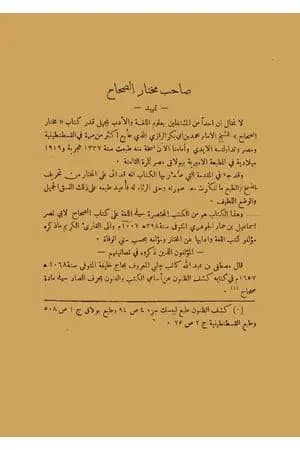 صاحب مختار الصحاح
— تمهيد —
لا نخال ان احداً من المشتغلين بعلوم اللغة والأدب يجهل قدر كتاب « مختار
الصحاح » للشيخ الامام محمد بن ابي بكر الرازي الذي طبع أكثر من مرة في القسطنطينية
ومصر وتداولته الايدي وأمامنا الان نسخة منه طبعت سنة ١٣٣٧ هجرية و١٩١٩
ميلادية في المطبعة الاميرية ببولاق مصر للمرة الثامنة ٠
وقد جاء في المقدمة التي صدّر بها الكتاب انه قد أتى على المختار من تحريف
الطبع ما تنكرت به صورته وحتى الرثاء له فأعيد طبعه على ذلك النسق الجميل
والوضع اللطيف ٠
وهذا الكتاب هو من الكتب المختصرة في اللغة على كتاب الصحاح لابي نصر
اسماعيل بن حماد الجوهري المتوفى سنة ٣٩٨ه ١٠٠٧م والى القارئ الكريم ما ذكره
مؤلفو كتب اللغة وآدابها عن المختار ومؤلفه بحسب سني الوفاة ٠
— المؤلفون الذين ذكروه في تصانيفهم —
قال مصطفى بن عبد الله كاتب چلبي المعروف بحاج خليفة المتوفى سنة ١٠٦٨ه
١٦٥٧م في كتابه كشف الظنون عن أسامي الكتب والفنون بحرف الصاد في مادة
صحاح (١)
(١) كشف الظنون طبع ليبسك جزء ٤ ص ٩٤ وطبع بولاق ج ١ ص ٥٠٨
وطبع القسطنطينية ج ٢ ص ٧٥ ٠